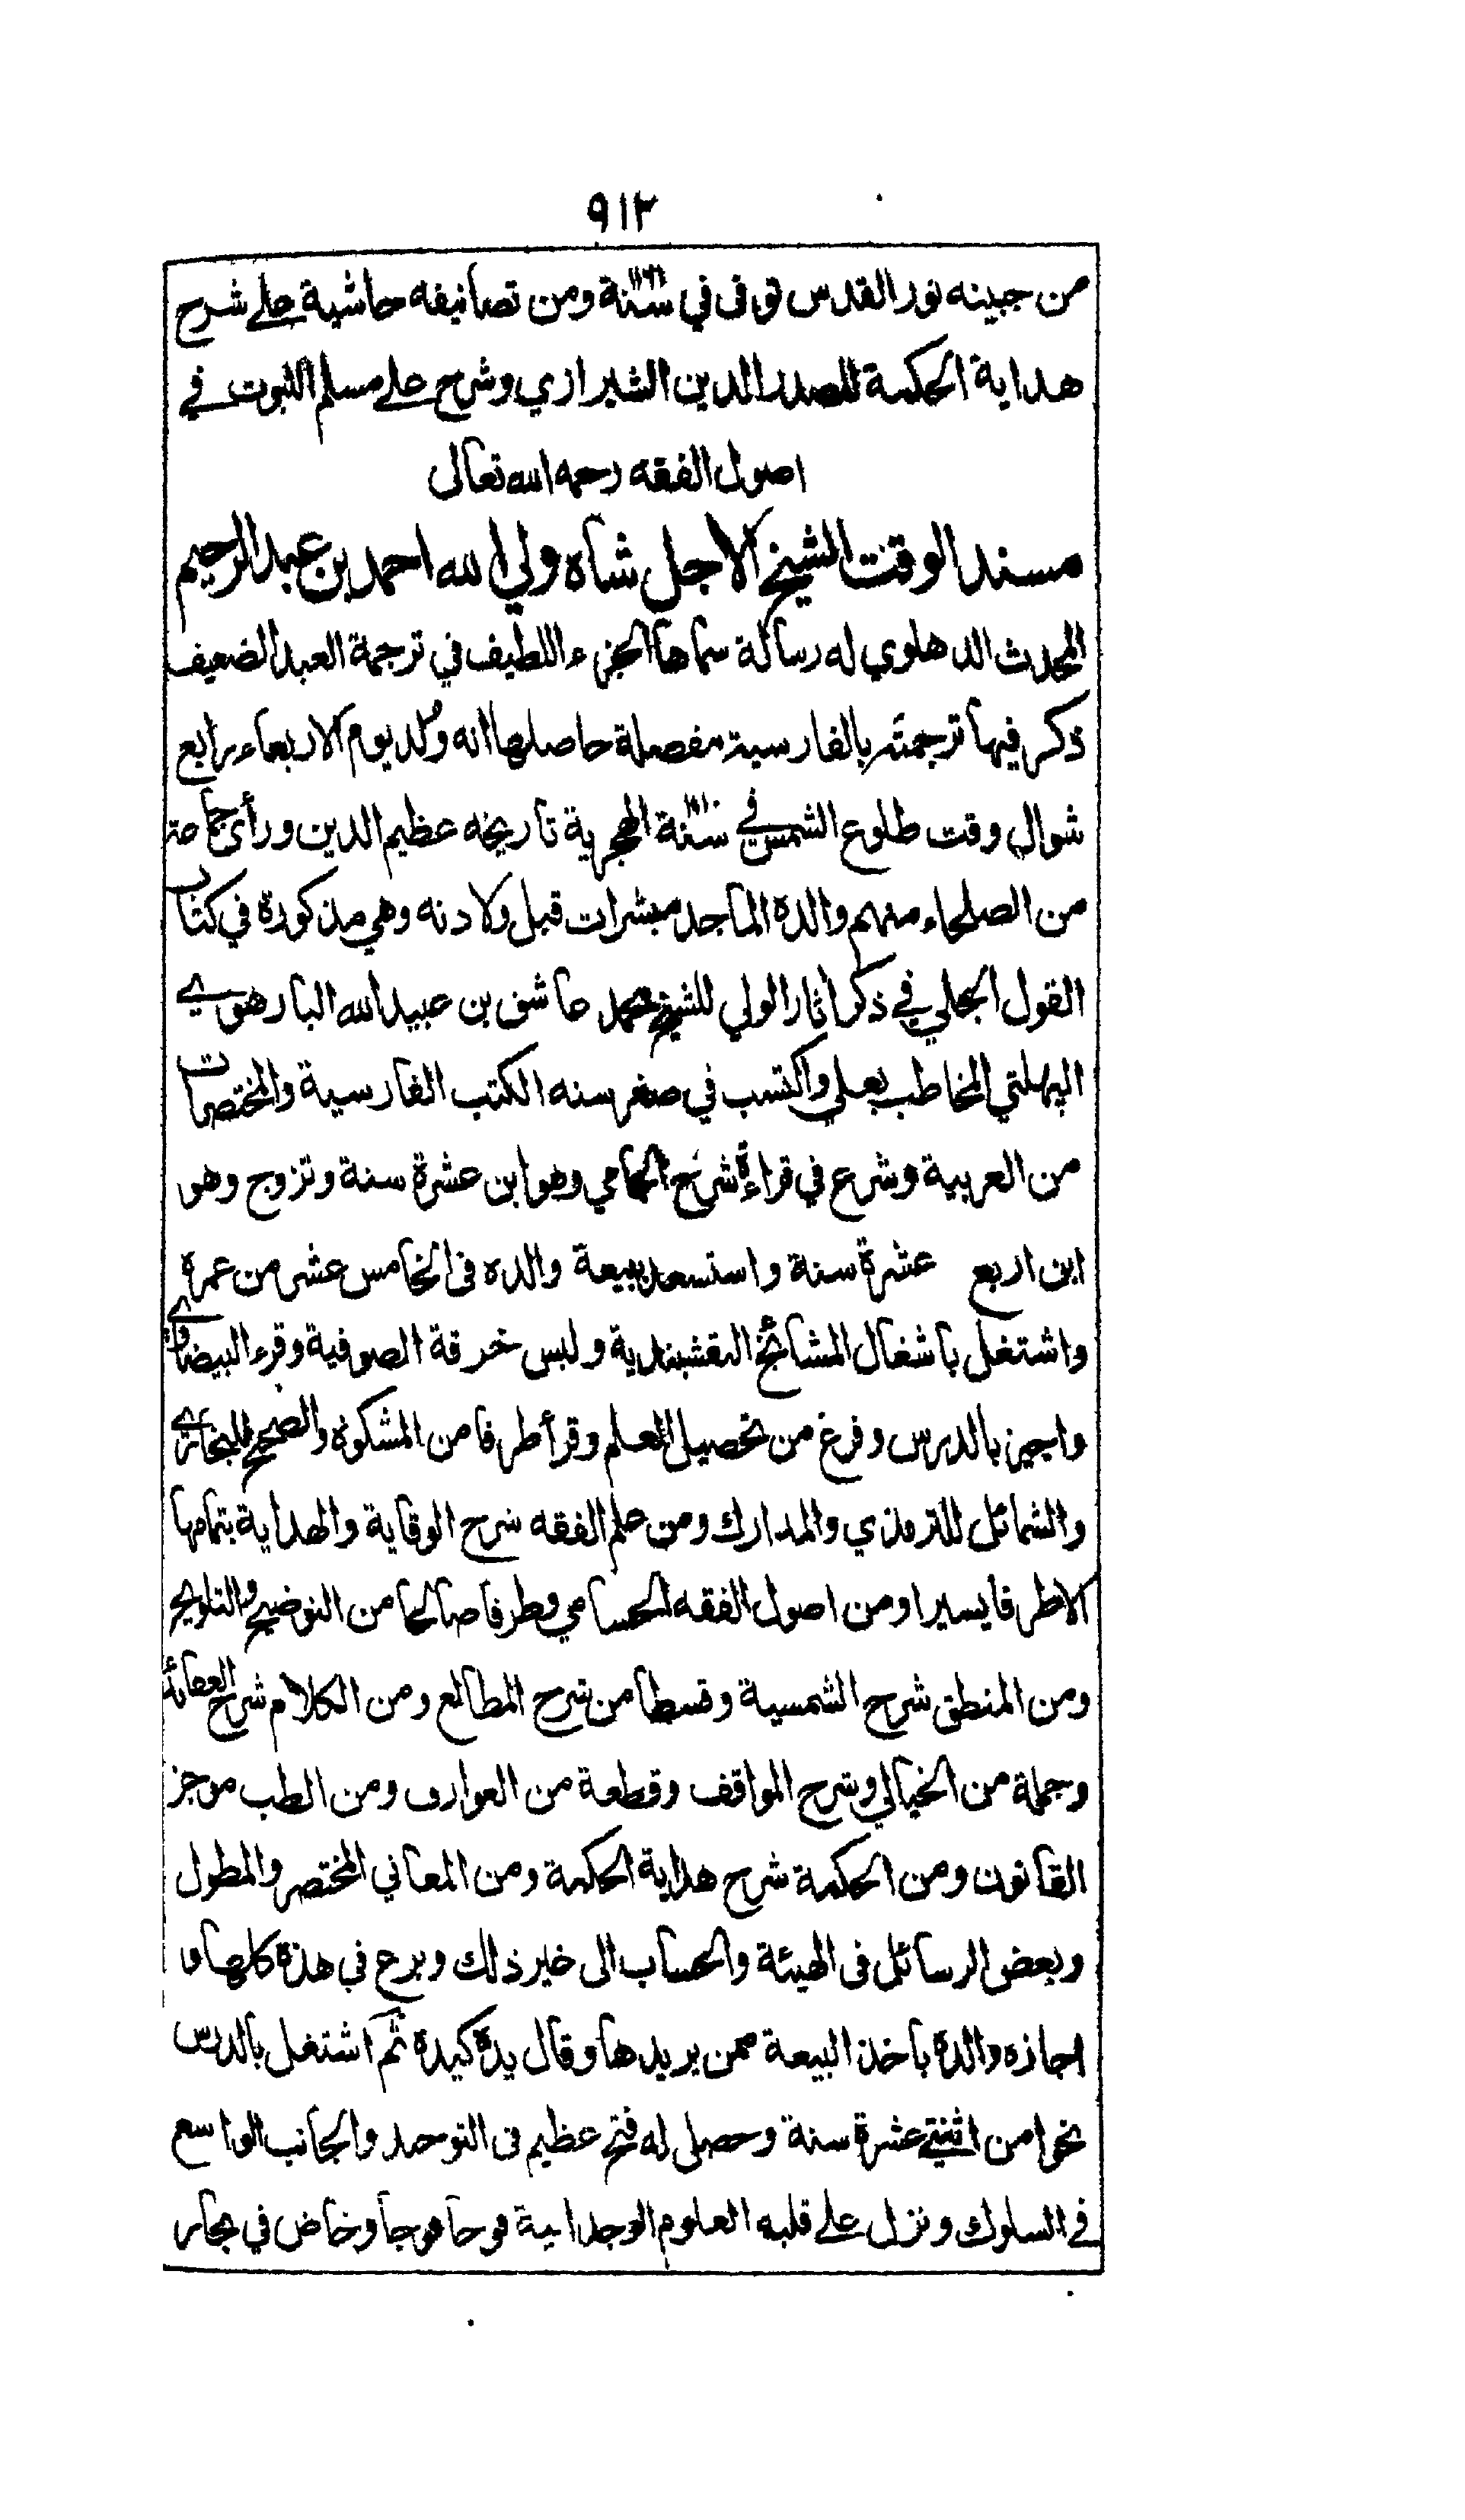 ٩١٢
من جبينه نور القدس توفى في سنة ١١٦١ ومن تصانيفه حاشية على شرح
هداية الحكمة للصدر الدين الشيرازي وشرح على مسلم الثبوت في
اصول الفقه رحمه الله تعالى
مسند الوقت الشيخ الاجل شاه ولي الله احمد بن عبد الرحيم
المحدث الدهلوي له رسالة سماها الجزء اللطيف في ترجمة العبد الضعيف
ذكر فيها ترجمته بالفارسية مفصلة حاصلها انه ولد يوم الاربعاء رابع
شوال وقت طلوع الشمس في سنة الهجرية تاريخه عظيم الدين ورأى جماعة
من الصلحاء منهم والده الماجد مبشرات قبل ولادته وهي مذكورة في كتاب
القول الجلي في ذكر اثار الولي للشيخ محمد عاشق بن عبيد الله البارهوي
البهلتي المخاطب بعلي واكتسب في صغر سنه الكتب الفارسية والمختصرات
من العربية وشرع في قراءة شرح الجامي وهو ابن عشرة سنة وتزوج وهو
ابن اربع عشرة سنة واستسعد ببيعة والده في الخامس عشر من عمره
واشتغل باشغال المشائخ النقشبندية ولبس خرقة الصوفية وقرء البيضاوي
واجيز بالدرس وفرغ من تحصيل العلم وقرأ طرفا من المشكوة والصحيح للبخاري
والشمائل للترمذي والمدارك ومن علم الفقه شرح الوقاية والهداية بتمامها
الا طرفا يسيرا ومن اصول الفقه الحسامي وطرفا صالحا من التوضيح والتلويح
ومن المنطق شرح الشمسية وقسطا من شرح المطالع ومن الكلام شرح العقائد
وجملة من الخيالي وشرح المواقف وقطعة من العوارف ومن الطب موجز
القانون ومن الحكمة شرح هداية الحكمة ومن المعاني المختصر والمطول
وبعض الرسائل في الهيئة والحساب الى غير ذلك وبرع في هذه كلها و
اجازه والده باخذ البيعة ممن يريدها وقال يده كيدي ثم اشتغل بالدرس
نحوا من اثنتي عشرة سنة وحصل له فتح عظيم في التوحيد والجانب الواسع
في السلوك ونزل على قلبه العلوم الوجدانية فوجا فوجا وخاض في بحار